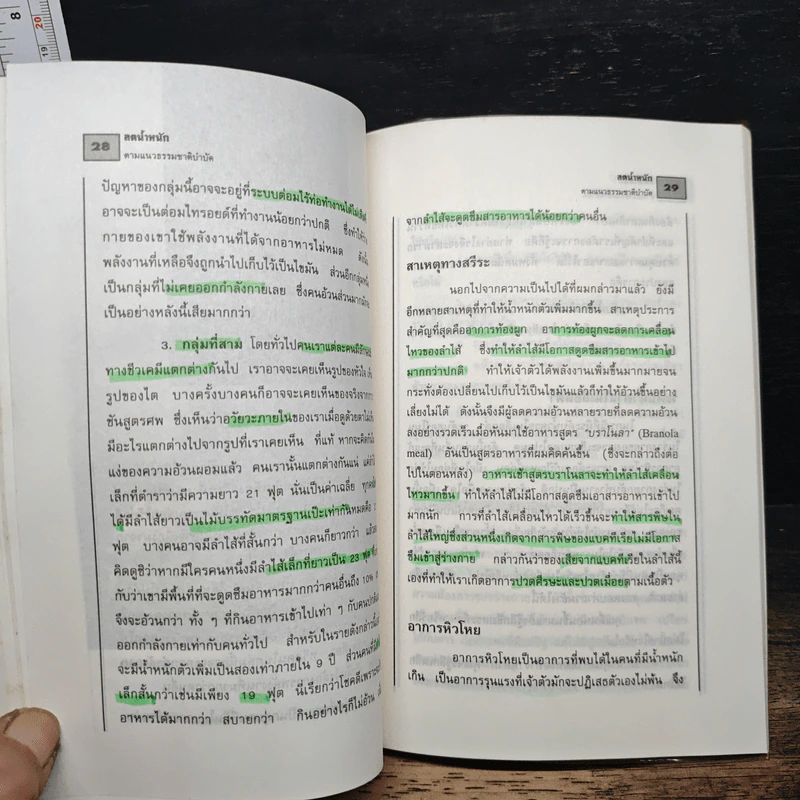 8
20
19
28
ลดน้ำหนัก
ตามแนวธรรมชาติบำบัด
ปัญหาของกลุ่มนี้อาจจะอยู่ที่ระบบต่อมไร้ท่อทำงานได้ไม่เต็มที่
อาจจะเป็นต่อมไทรอยด์ที่ทำงานน้อยกว่าปกติ ซึ่งทำให้ร่าง
กายของเขาใช้พลังงานที่ได้จากอาหารไม่หมด ดังนั้น
พลังงานที่เหลือจึงถูกนำไปเก็บไว้เป็นไขมัน ส่วนอีกกลุ่มหนึ่ง
เป็นกลุ่มที่ไม่เคยออกกำลังกายเลย ซึ่งคนอ้วนส่วนมากมัก
เป็นอย่างหลังนี้เสียมากกว่า
3. กลุ่มที่สาม โดยทั่วไปคนเราแต่ละคนมี
ทางชีวเคมีแตกต่างกันไป เราอาจจะเคยเห็นรูปของหัวใจ เห็น
รูปของไต บางครั้งบางคนก็อาจจะเคยเห็นของจริงจากการ
ชันสูตรศพ ซึ่งเห็นว่าอวัยวะภายในของเราเมื่อดูด้วยตาไม่เห็น
มีอะไรแตกต่างไปจากรูปที่เราเคยเห็น ที่แท้ หากจะคิดกันใน
แง่ของความอ้วนผอมแล้ว คนเรานั้นแตกต่างกันแน่ แค่ลำไส้
เล็กที่ตำราว่ามีความยาว 21 ฟุต นั่นเป็นค่าเฉลี่ย ทุกคน
ได้มีลำไส้ยาวเป็นไม้บรรทัดมาตรฐานเป๊ะเท่ากันหมดทั้ง
ฟุต บางคนอาจมีลำไส้ที่สั้นกว่า บางคนก็ยาวกว่า แล้ว
คิดดูซิว่าหากมีใครคนหนึ่งมีลำไส้เล็กที่ยาวเป็น 23 ฟุต
กับว่าเขามีพื้นที่ที่จะดูดซึมอาหารมากกว่าคนอื่นถึง 10%
จึงจะอ้วนกว่า ทั้ง ๆ ที่กินอาหารเข้าไปเท่า ๆ กับคนปกติ
ออกกำลังกายเท่ากับคนทั่วไป สำหรับในรายดังกล่าวนี้
จะมีน้ำหนักตัวเพิ่มเป็นสองเท่าภายใน 9 ปี ส่วนคนที่
เล็กสั้นกว่าเช่นมีเพียง 19 ฟุต นี่เรียกว่าโชคดีเพราะ
อาหารได้มากกว่า สบายกว่า กินอย่างไรก็ไม่อ้วน
ลดน้ำหนัก
ตามแนวธรรมชาติบำบัด
29
จากลำไส้จะดูดซึมสารอาหารได้น้อยกว่าคนอื่น
สาเหตุทางสรีระ
นอกไปจากความเป็นไปได้ที่ผมกล่าวมาแล้ว ยังมี
อีกหลายสาเหตุที่ทำให้น้ำหนักตัวเพิ่มมากขึ้น สาเหตุประการ
สำคัญที่สุดคืออาการท้องผูก อาการท้องผูกจะลดการเคลื่อน
ไหวของลำไส้ ซึ่งทำให้ลำไส้มีโอกาสดูดซึมสารอาหารเข้าไป
มากกว่าปกติ ทำให้เจ้าตัวได้พลังงานเพิ่มขึ้นมากมายจน
กระทั่งต้องเปลี่ยนไปเก็บไว้เป็นไขมันแล้วก็ทำให้อ้วนขึ้นอย่าง
เลี่ยงไม่ได้ ดังนั้นจึงมีผู้ลดความอ้วนหลายรายที่ลดความอ้วน
ลงอย่างรวดเร็วเมื่อหันมาใช้อาหารสูตร "บราโนลา" (Branola
meal) อันเป็นสูตรอาหารที่ผมคิดค้นขึ้น (ซึ่งจะกล่าวถึงต่อ
ไปในตอนหลัง) อาหารเช้าสูตรบราโนลาจะทำให้ลำไส้เคลื่อน
ไหวมากขึ้น ทำให้ลำไส้ไม่มีโอกาสดูดซึมเอาสารอาหารเข้าไป
มากนัก การที่ลำไส้เคลื่อนไหวได้เร็วขึ้นจะทำให้สารพิษใน
ลำไส้ใหญ่ซึ่งส่วนหนึ่งเกิดจากสารพิษของแบคทีเรียไม่มีโอกาส
ซึมเข้าสู่ร่างกาย กล่าวกันว่าของเสียจากแบคทีเรียในลำไส้นี้
เองที่ทำให้เราเกิดอาการปวดศีรษะและปวดเมื่อยตามเนื้อตัว
อาการหิวโหย
อาการหิวโหยเป็นอาการที่พบได้ในคนที่มีน้ำหนัก
เกิน เป็นอาการรุนแรงที่เจ้าตัวมักจะปฏิเสธตัวเองไม่พ้น จึง